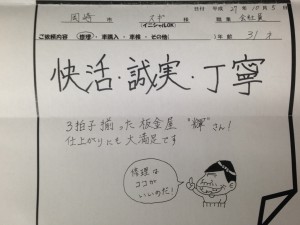 日付 平成 27年 10月 5日
岡崎市 スガ 様 職業 会社員
(イニシャルOK)
ご依頼内容 修理・車購入・車検・その他( ) 年齢 31才
快活・誠実・丁寧
3拍子揃った板金屋 “輝”さん!
仕上がりにも大満足です
修理は
ココが
いいのだ!